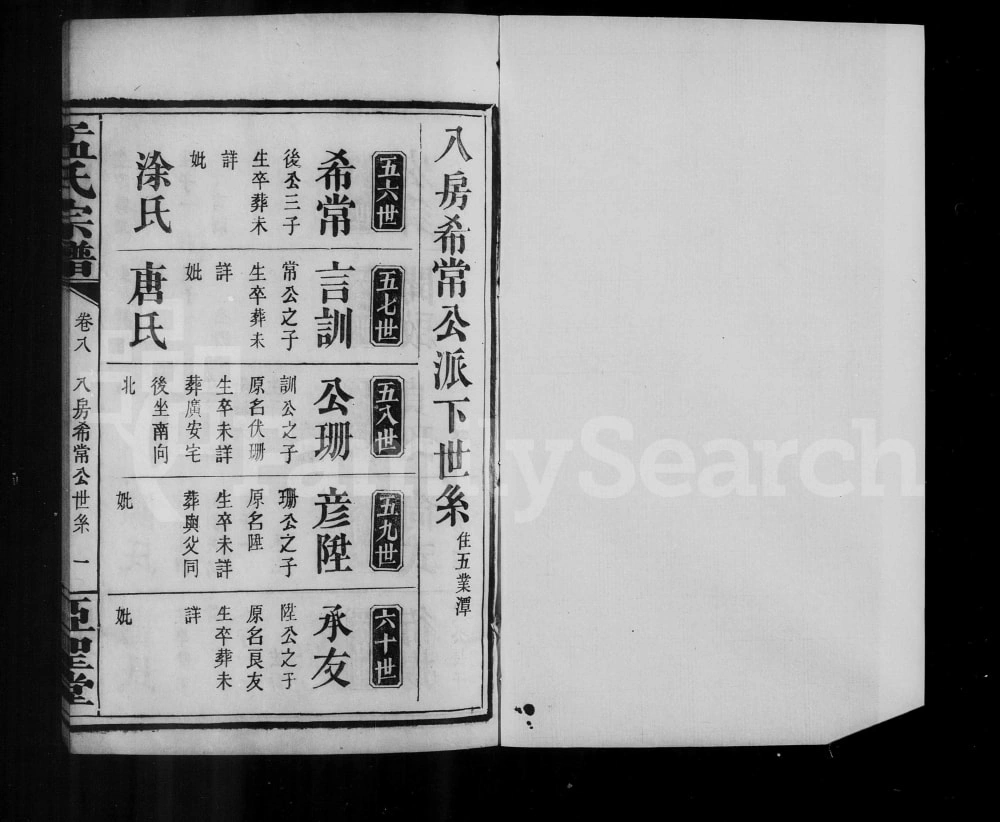 八房希常公派下世系
住五業潭
五六世
希常
後公三子
生卒葬未
詳
妣
涂氏
五七世
言訓
常公之子
生卒葬未
詳
妣
唐氏
五八世
公珊
訓公之子
原名伏珊
生卒未詳
葬廣安宅
後坐南向
北
五九世
彦陞
珊公之子
原名陞
生卒未詳
葬與父同
妣
六十世
承友
陞公之子
原名良友
生卒葬未
詳
妣
孟氏宗譜
卷八
八房希常公世系
一
亞聖堂
FamilySearch